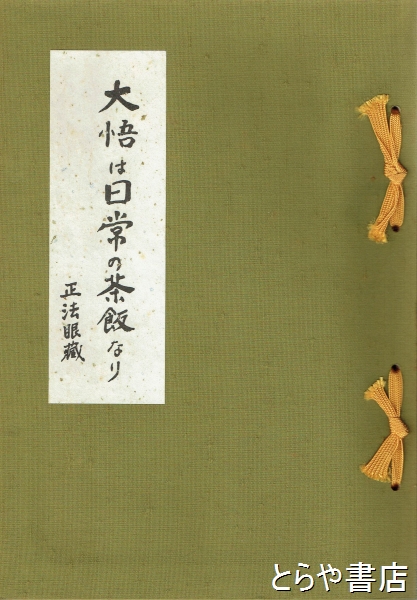 大悟は日常の茶飯なり
正法眼藏
とらや書店